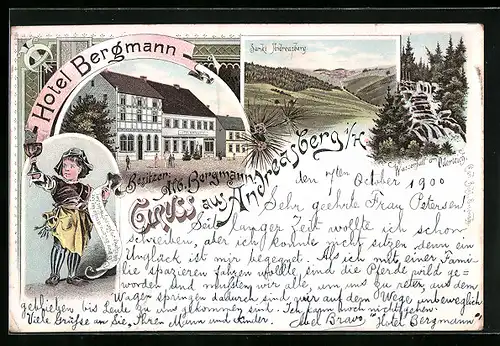 Hotel Bergmann
Sankt Andreasberg
Besitzer:
Alb. Bergmann
Gruss aus Andreasberg i/H
Wasserfall am
Oderteich.
den 17ten October 1900
Sehr geehrte Frau Petersen!
Seit langer Zeit wollte ich schon
schreiben, aber ich konnte nicht sitzen denn ein
Unglück ist mir begegnet. Als ich mit einer Fami-
lie spazieren fahren wollte, sind die Pferde wild ge-
worden und mussten wir alle, um uns zu reten, aus dem
Wagen springen dadurch sind wir auf dem Wege unbeweglich
geblieben bis Leute zu uns gekommen sind. Ich kann noch nicht gehen.
Viele Grüsse an Sie, Ihren Mann und Kinder. Abel Bravo „Hotel Bergmann"